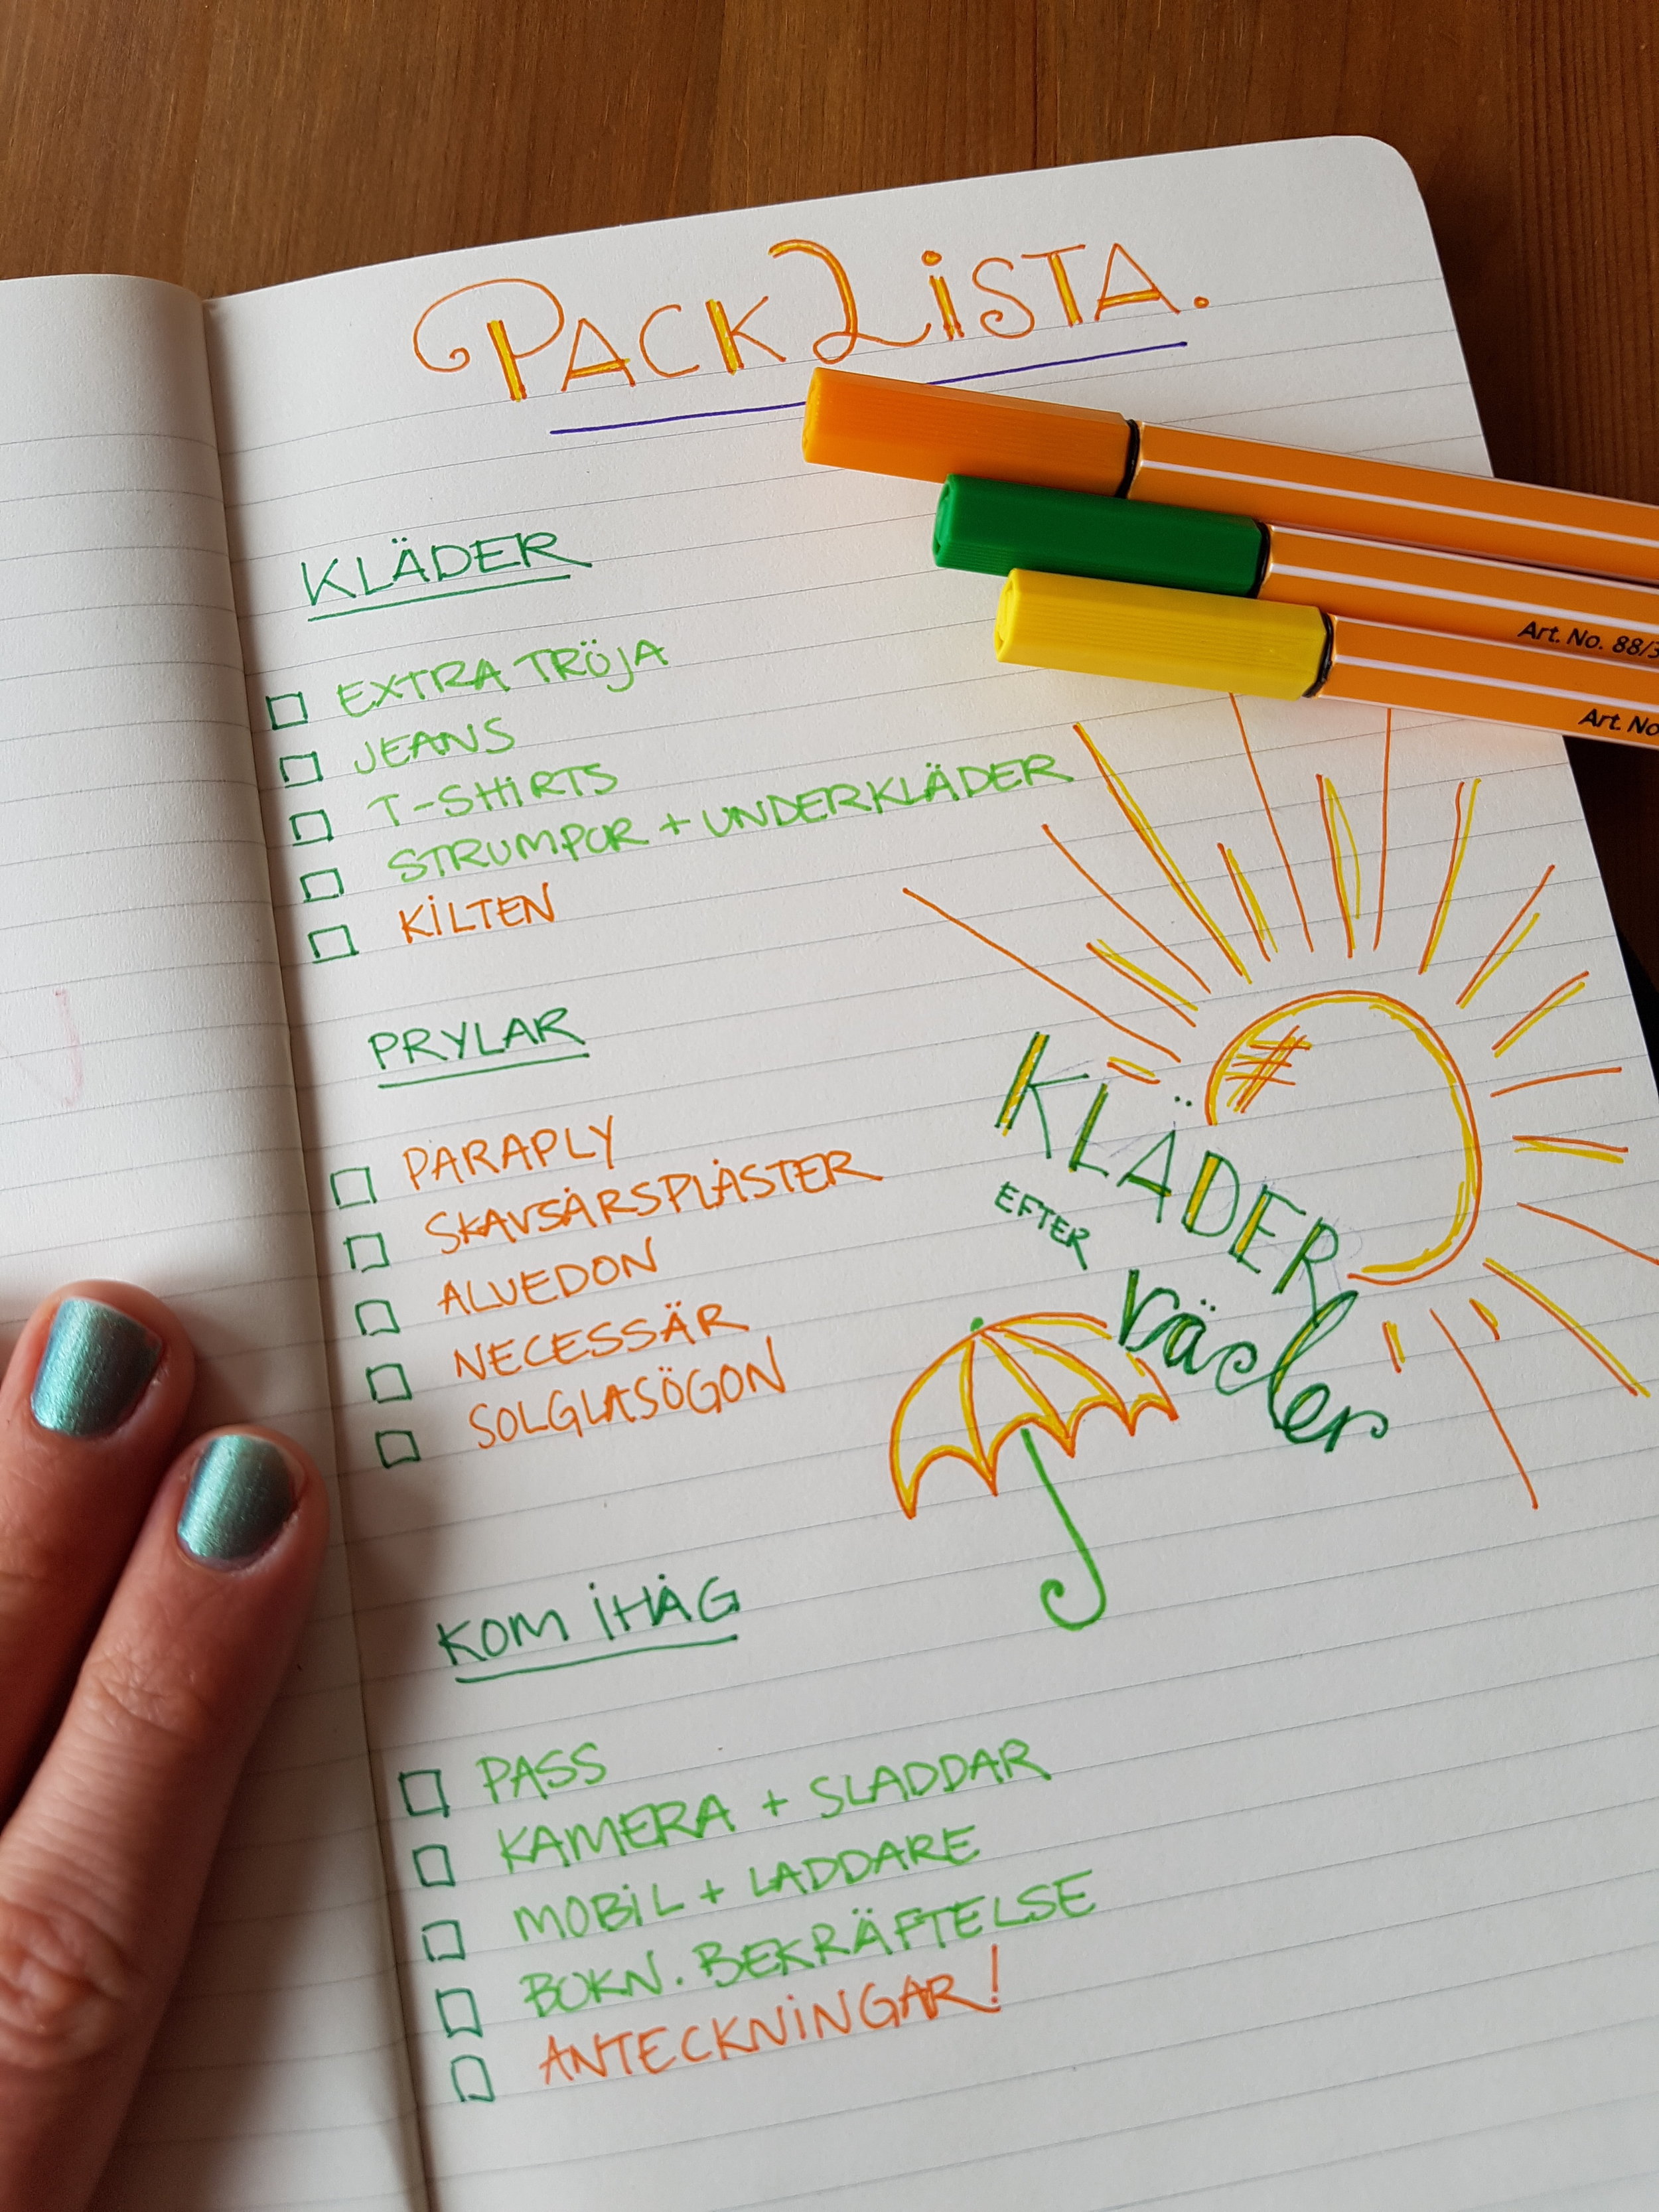 PACKLiSTA.
KLÄDER
EXTRA TRÖJA
JEANS
T-SHiRTS
STRUMPOR + UNDERKLÄDER
KiLTEN
PRYLAR
PARAPLY
SKAVSÅRSPLÅSTER
ALVEDON
NECESSÄR
SOLGLASÖGON
KLÄDER
EFTER
väder
KOM iHÅG
PASS
KAMERA + SLADDAR
MOBiL + LADDARE
BOKN. BEKRÄFTELSE
ANTECKNiNGAR!
Art. No. 88/3
Art. No